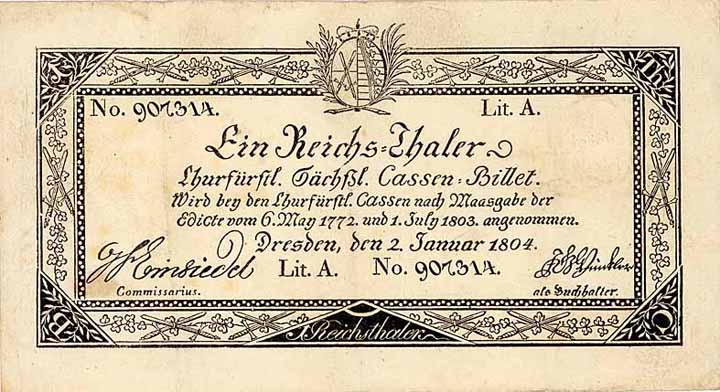 No. 907314. Lit. A.
Ein Reichs=Thaler
Churfürstl. Sächßl. Cassen=Billet.
Wird bey den Churfürstl. Cassen nach Maasgabe der
Edicte vom 6. May 1772. und 1. July 1803. angenommen.
Dresden, den 2. Januar 1804.
Einsiedel Lit. A. No. 907314.
Commissarius. als Buchhalter.
1. Reichsthaler
B C